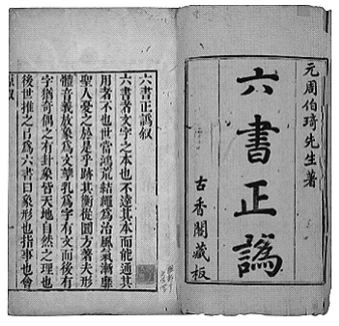 元周伯琦先生著
六書正譌
古香閣藏板
六書正譌叙
六書者文字之本也不達其本而能通其
用者不也世當鴻荒結繩為治風氣漸靡
聖人憂之於是乎跡其衡從圓方著夫形
體音義放象為文孳乳為字有文而後有
字猶奇偶之有卦象皆天地自然之理也
後世推之以為六書曰象形也指事也會